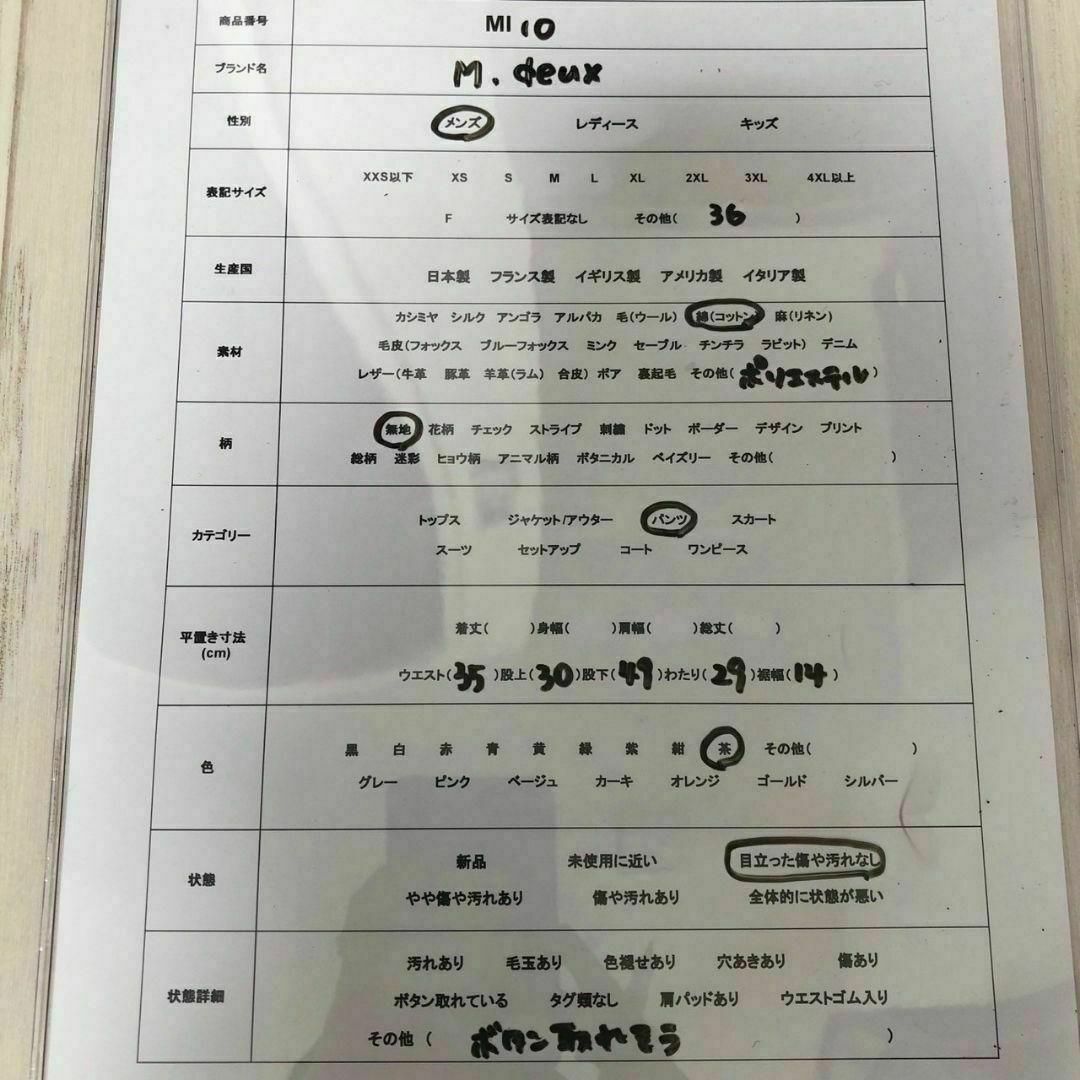 商品番号 MI 10
ブランド名 M. deux
性別 メンズ レディース キッズ
表記サイズ XXS以下 XS S M L XL 2XL 3XL 4XL以上
F サイズ表記なし その他( 36 )
生産国 日本製 フランス製 イギリス製 アメリカ製 イタリア製
素材 カシミヤ シルク アンゴラ アルパカ 毛(ウール) 綿(コットン) 麻(リネン)
毛皮(フォックス ブルーフォックス ミンク セーブル チンチラ ラビット) デニム
レザー(牛革 豚革 羊革(ラム) 合皮) ボア 裏起毛 その他( ポリエステル )
柄 無地 花柄 チェック ストライプ 刺繍 ドット ボーダー デザイン プリント
総柄 迷彩 ヒョウ柄 アニマル柄 ボタニカル ペイズリー その他( )
カテゴリー トップス ジャケット/アウター パンツ スカート
スーツ セットアップ コート ワンピース
平置き寸法 着丈( )身幅( )肩幅( )総丈( )
(cm) ウエスト(35)股上(30)股下(49)わたり(29)裾幅(14)
色 黒 白 赤 青 黄 緑 紫 紺 茶 その他( )
グレー ピンク ベージュ カーキ オレンジ ゴールド シルバー
状態 新品 未使用に近い 目立った傷や汚れなし
やや傷や汚れあり 傷や汚れあり 全体的に状態が悪い
状態詳細 汚れあり 毛玉あり 色褪せあり 穴あきあり 傷あり
ボタン取れている タグ類なし 肩パッドあり ウエストゴム入り
その他 ( ボタン取れそう )